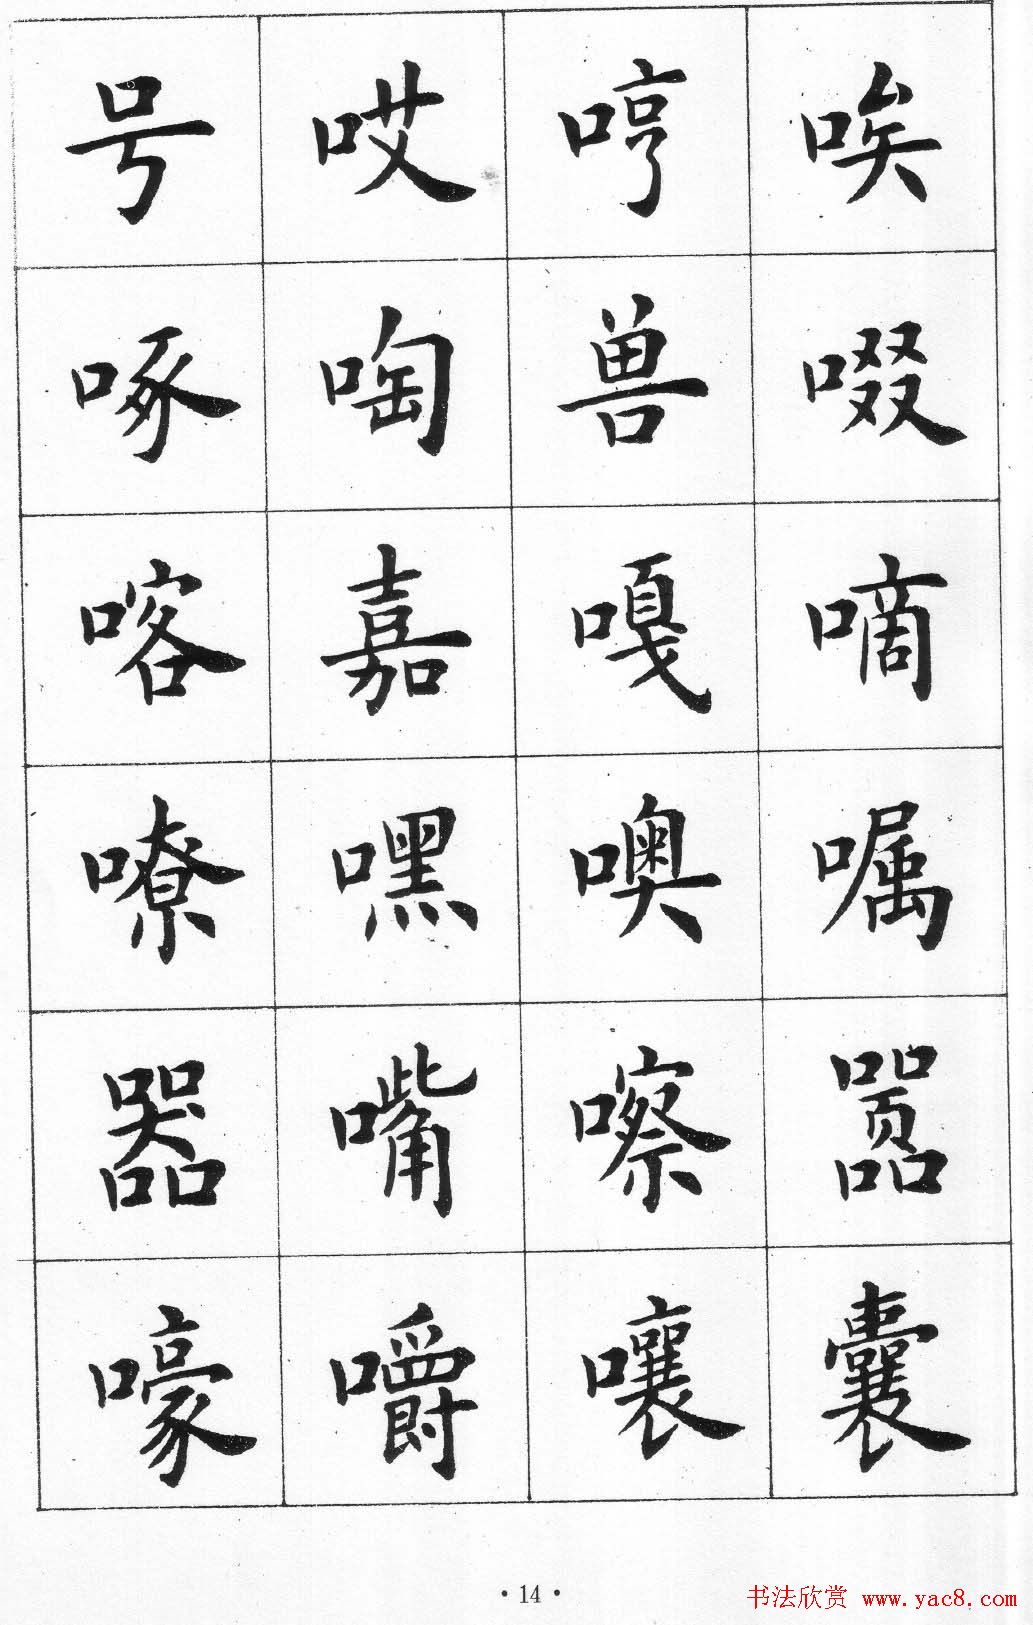 号哎哼唉
啄啕兽啜
喀嘉嘎嘀
嘹嘿噢嘱
器嘴嚓嚣
嚎嚼嚷囊
·14· 书法欣赏 www.yac8.com